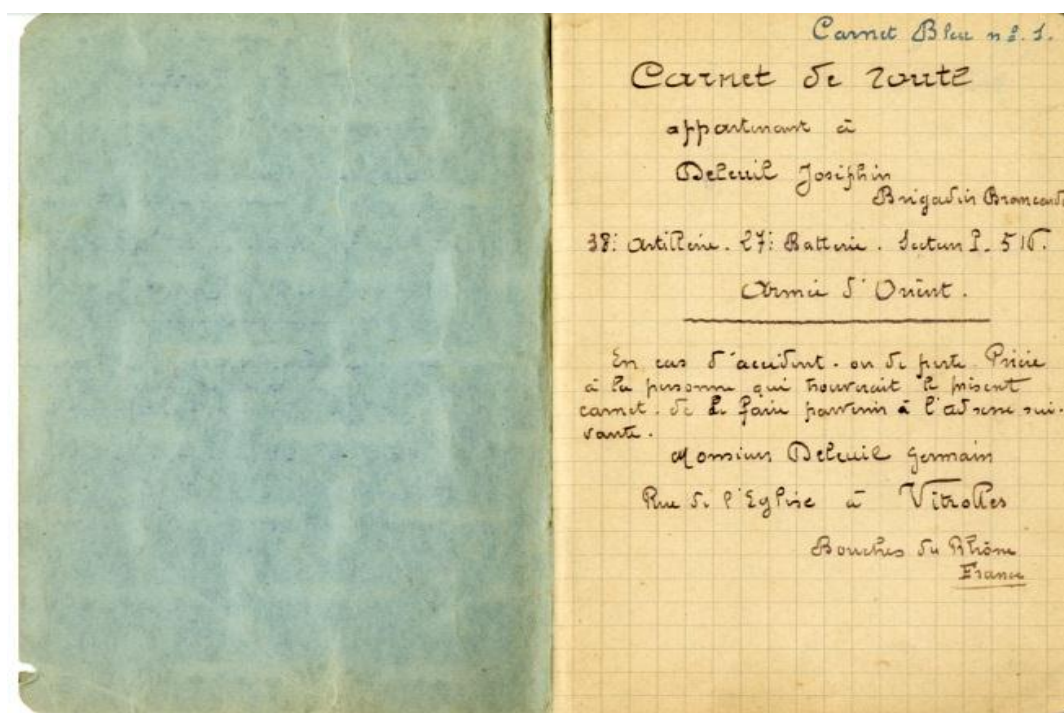 Carnet Bleu nº. 1.
Carnet de route
appartenant à
Deleuil Josephin
Brigadier Brancard
38: Artillerie. 27: Batterie. Secteur P. 516.
Armée d'Orient.
En cas d'accident. ou de perte. Prière
à la personne qui trouverait le présent
carnet. de le faire parvenir à l'adresse sui-
vante.
Monsieur Deleuil Germain
Rue de l'Eglise à Vitrolles
Bouches du Rhône
France